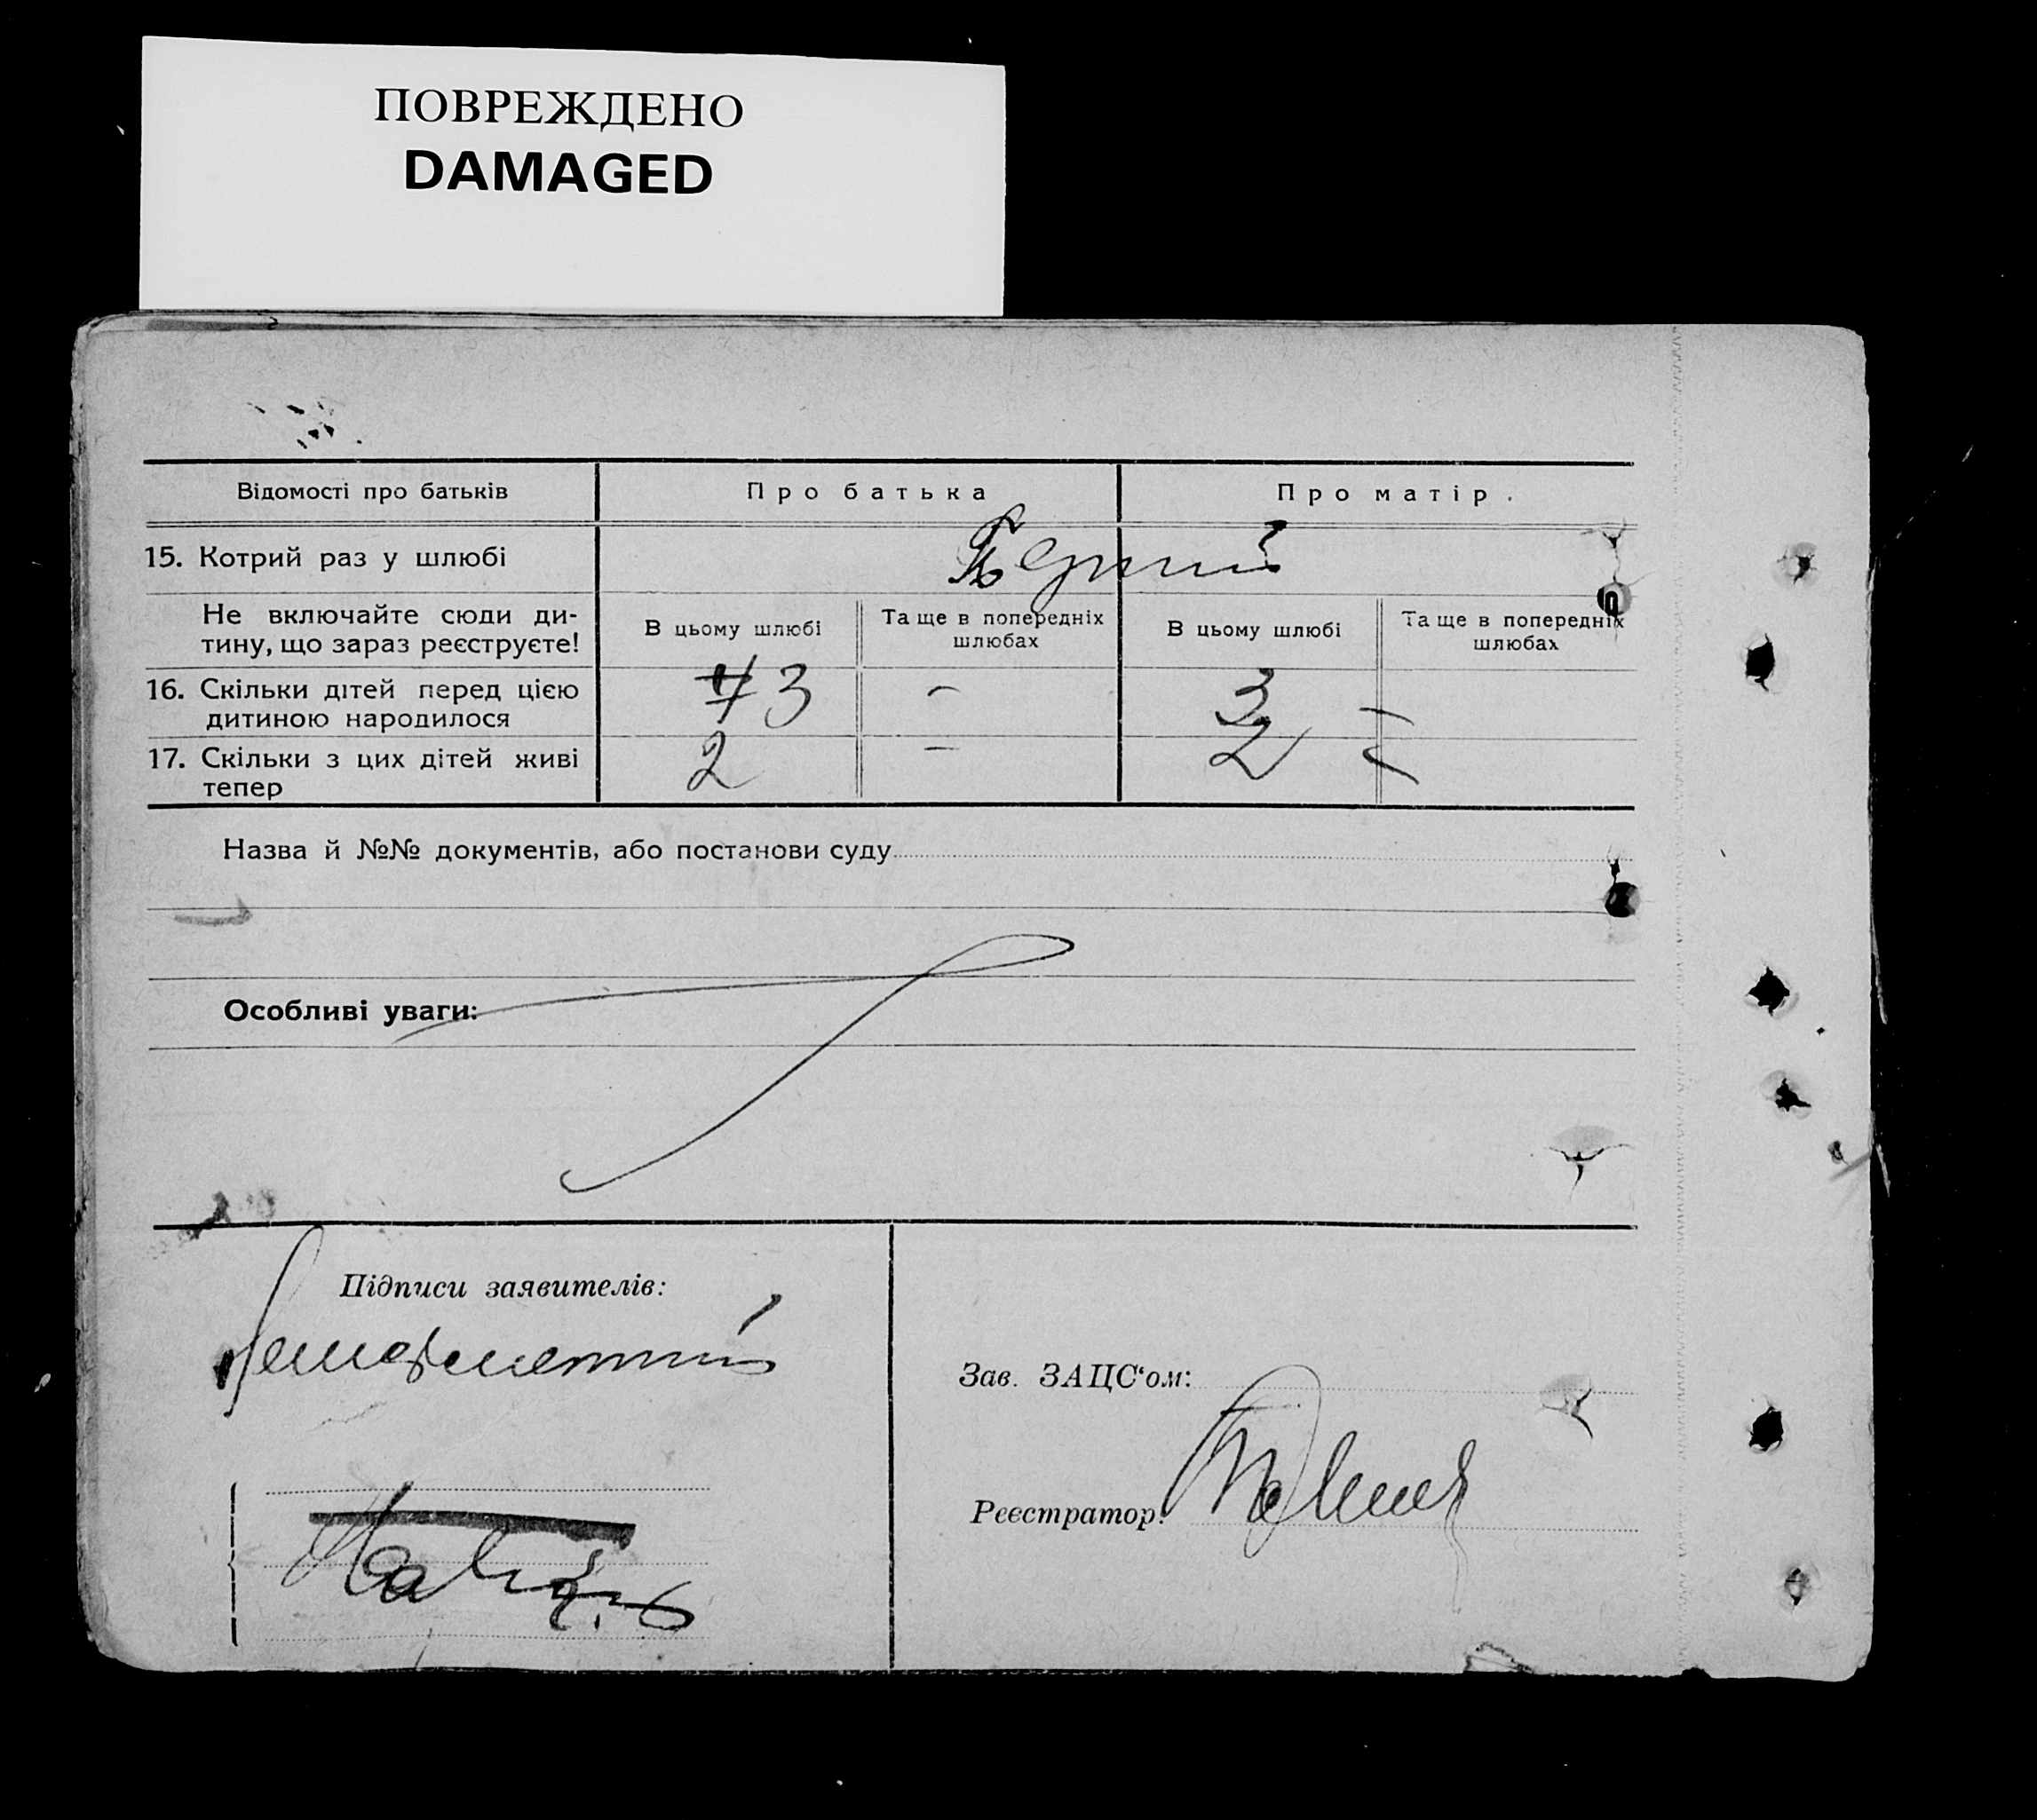 ПОВРЕЖДЕНО
DAMAGED
Відомості про батьків
Про батька
Про матір.
15. Котрий раз у шлюбі
Не включайте сюди ди-
тину, що зараз реєструєте!
В цьому шлюбі
Та ще в попередніх
шлюбах
В цьому шлюбі
Та ще в попередніх
шлюбах
16. Скільки дітей перед цією
дитиною народилося
3 – 3 –
17. Скільки з цих дітей живі
тепер
2 – 2 –
Назва й №№ документів, або постанови суду
Особливі уваги:
Підписи заявителів:
Зав. ЗАЦС‘ом:
Реєстратор: